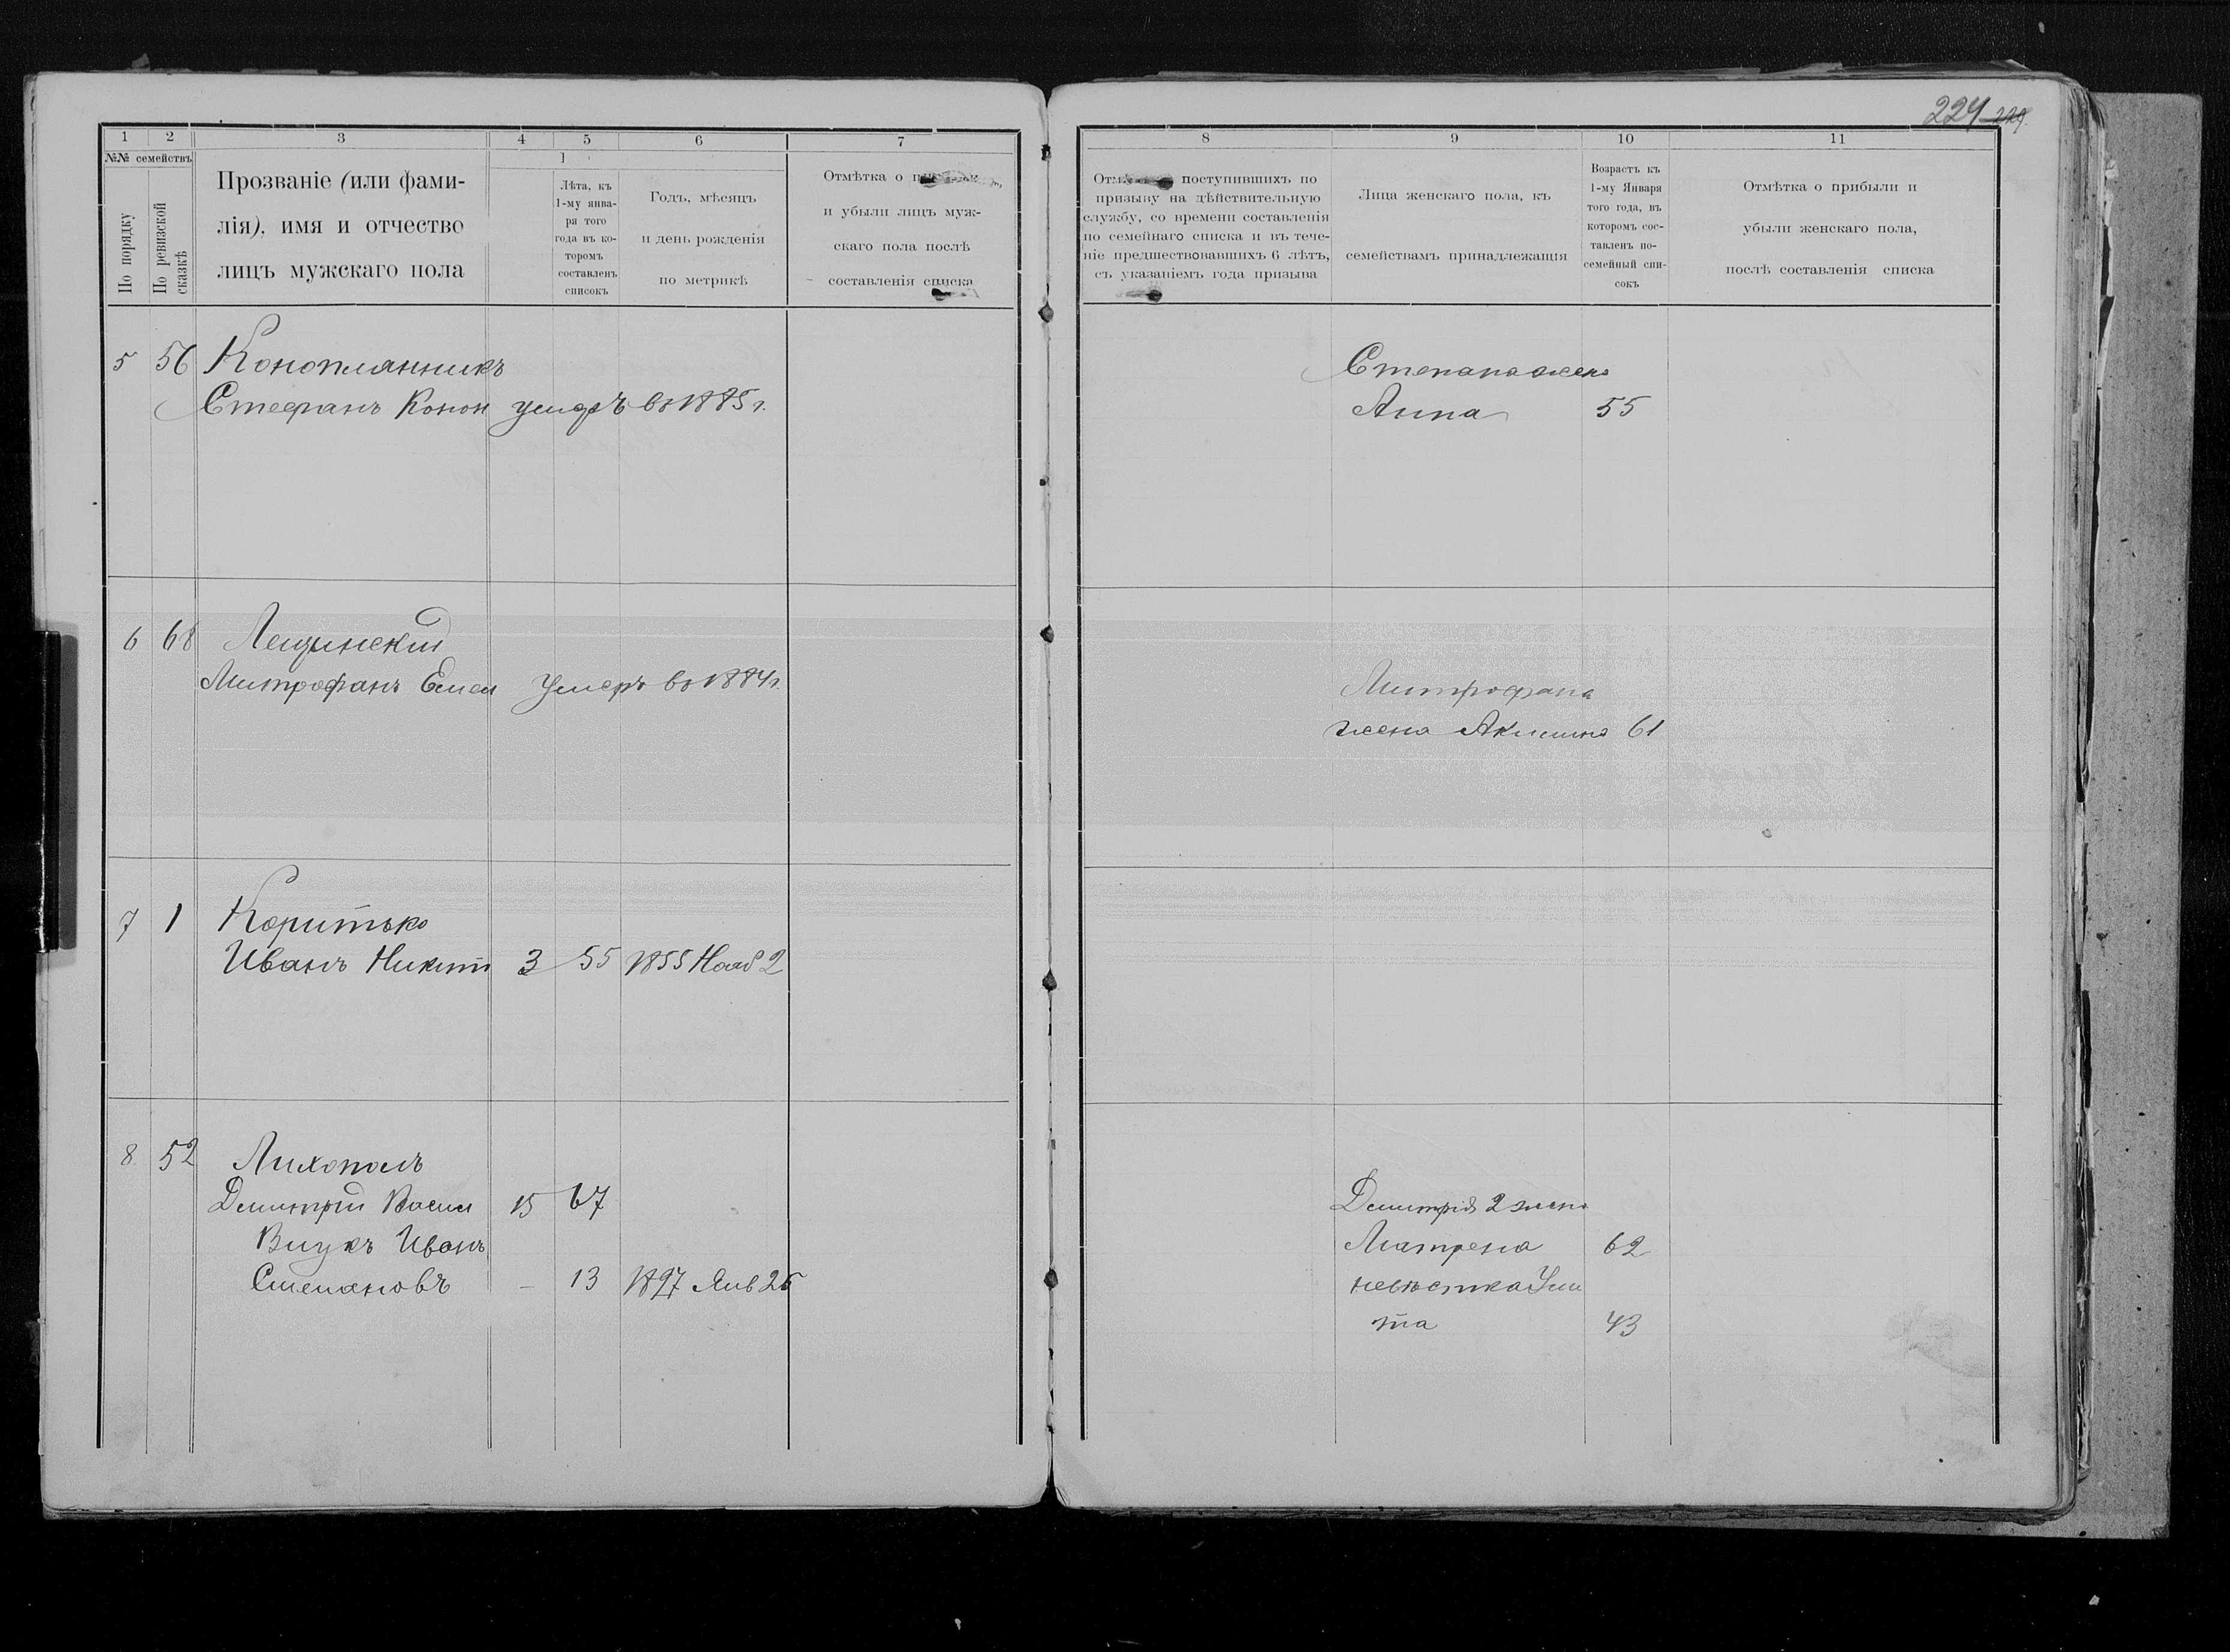 224 229.
1 2 3 4 5 6 7
№№ семействъ
По порядку
По ревизской сказкѣ
Прозваніе (или фами-
лія), имя и отчество
лицъ мужскаго пола
1
Лѣта, къ
1-му янва-
ря того
года въ ко-
торомъ
составленъ
списокъ
Годъ, мѣсяцъ
и день рожденія
по метрикѣ
Отмѣтка о
и убыли лицъ муж-
скаго пола послѣ
составленія списка
5 56 Коноплянникъ
Стефанъ Конон умеръ въ 1885 г.
6 68 Лещинскій
Митрофанъ Емел Умеръ въ 1884 г.
7 1 Коритько
Иванъ Никит 3 55 1855 Нояб 2
8 52 Лихополъ
Димитрій Васил 15 67
Внукъ Иванъ
Степановъ - 13 1897 Янв 25
8 9 10 11
поступившихъ по
призыву на дѣйствительную
службу, со времени составленія
по семейнаго списка и въ тече-
ніе предшествовавшихъ 6 лѣтъ,
съ указаніемъ года призыва
Лица женскаго пола, къ
семействамъ принадлежащія
Возрастъ къ
1-му Января
того года, въ
которомъ сос-
тавленъ по-
семейный спи-
сокъ
Отмѣтка о прибыли и
убыли женскаго пола,
послѣ составленія списка
Степана жена
Анна 55
Митрофана
жена Акилина 61
Димитрія 2 жена
Матрена 62
невѣстка Ули
та 43